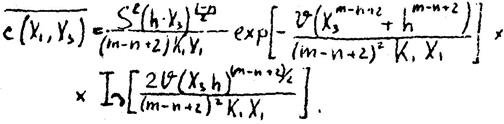 \overline{c(X_1, X_3)} = \frac{S^2 (h \cdot X_3)^{\frac{1-n}{2}}}{(m-n+2) K_1 X_1} - exp\left[ - \frac{\vartheta (X_3^{m-n+2} + h^{m-n+2})}{(m-n+2)^2 K_1 X_1} \right] \times
\times I_\nu \left[ \frac{2\vartheta (X_3 h)^{(m-n+2)/2}}{(m-n+2)^2 K_1 X_1} \right].